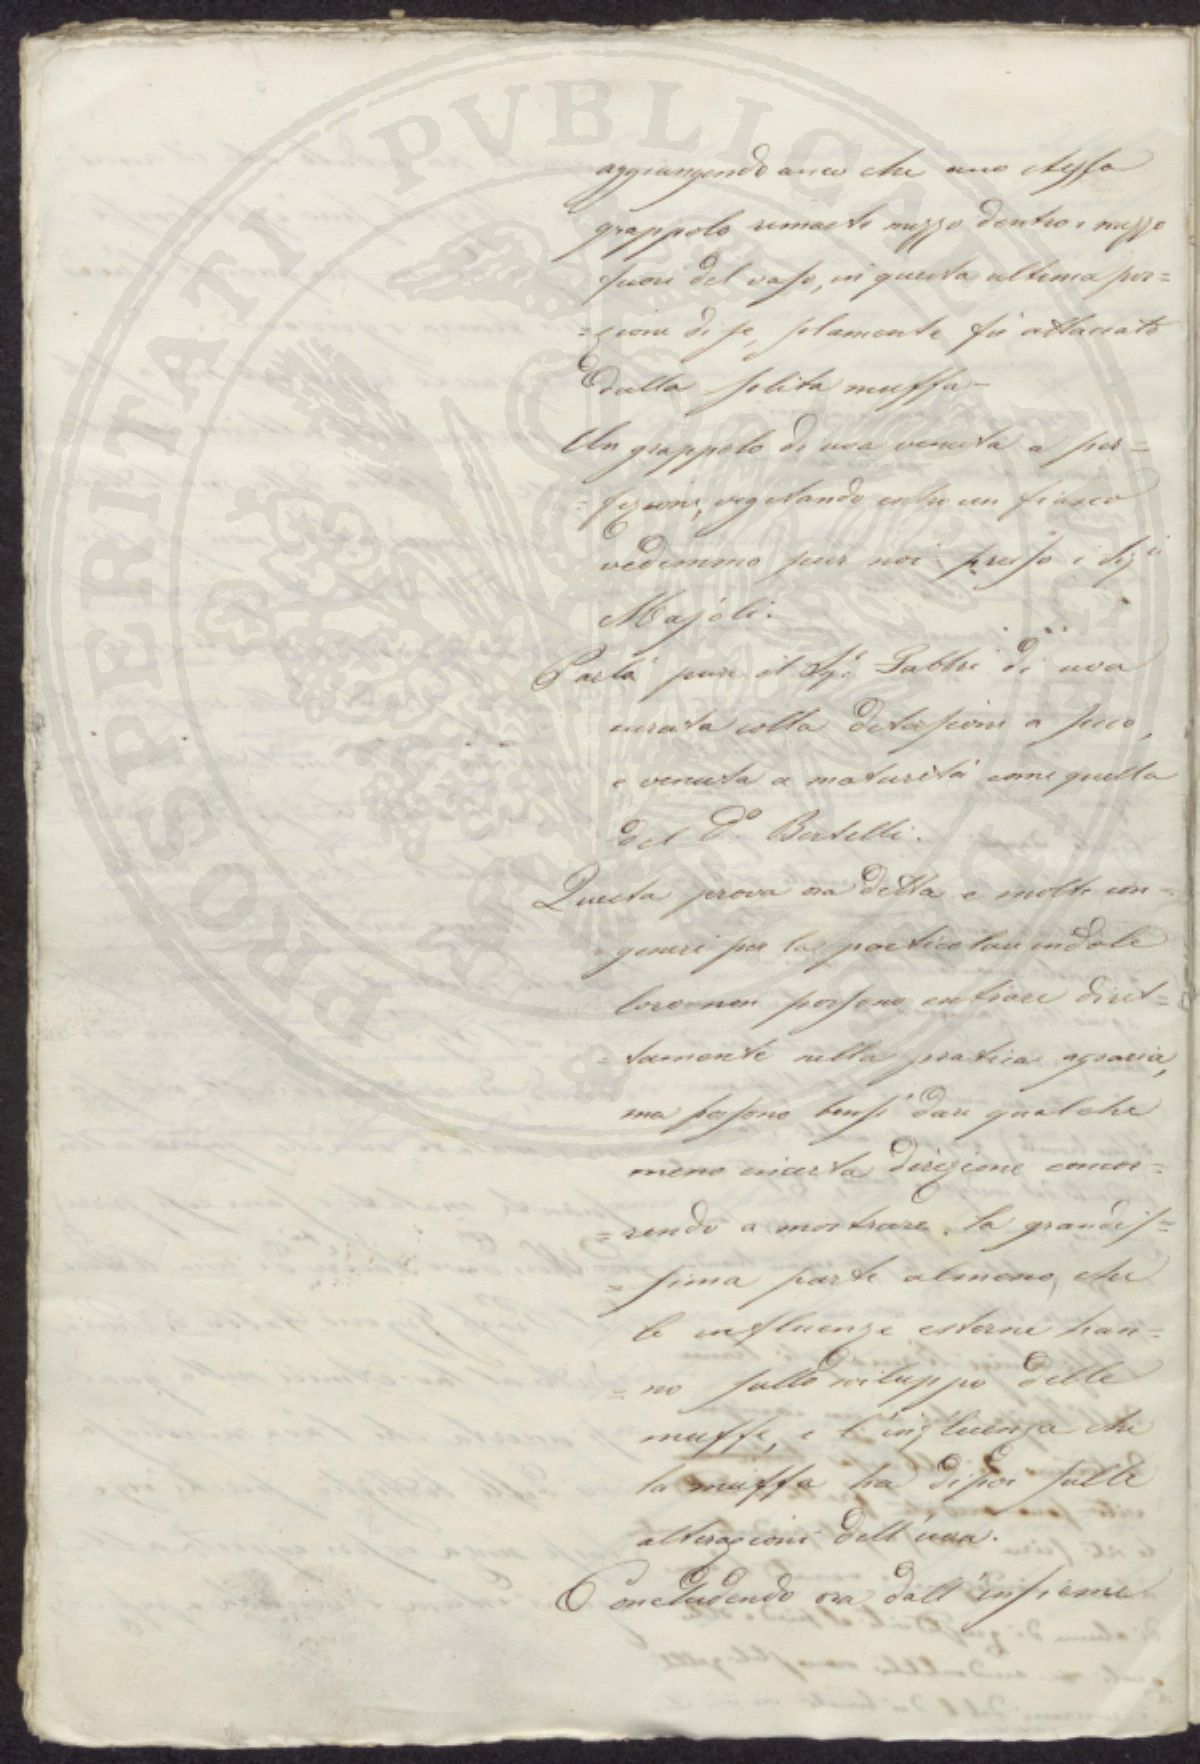 PROSPERITATI PVBLICAE
aggiungendo anco che uno stesso
grappolo rimasto mezzo dentro e mezzo
fuori del vaso, in questa ultima por=
=zione di se, solamente fù attaccato
dalla solita muffa –
Un grappolo di uva venuta a per=
=fezione, vegetando entro un fiasco
vedemmo pur noi presso i Sig.i
Majoli.
Parlà pure il Sig.r Fabbri di uva
curata colla detersione a secco,
e venuta a maturità come quella
del D.o Bertelli.
Questa prova ora detta e molte con=
=generi per la particolare indole
loro non possono entrare diret=
=tamente nella pratica agraria,
ma possono bensì dare qualche
meno incerta direzione concor=
=rendo a mostrare la grandis=
=sima parte almeno, che
le influenze esterne han=
=no sullo sviluppo delle
muffe, e l'influenza che
la muffa ha dipoi sulle
alterazioni dell'uva.
Concludendo ora dall'insieme